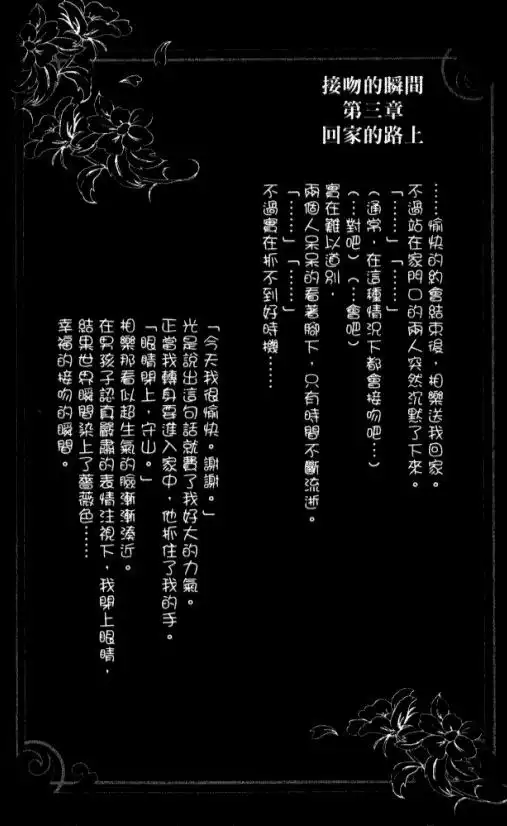 接吻的瞬間
第三章
回家的路上
……愉快的約會結束後，相樂送我回家。
不過站在家門口的兩人突然沉默了下來。
「……」「……」
（通常，在這種情況下都會接吻吧…）
（…對吧）（…會吧）
實在難以道別，
兩個人呆呆的看著腳下，只有時間不斷流逝。
「……」「……」
不過實在抓不到好時機……
「今天我很愉快。謝謝。」
光是說出這句話就費了我好大的力氣。
正當我轉身要進入家中，他抓住了我的手。
「眼睛閉上，守山。」
相樂那看似超生氣的臉漸漸湊近。
在男孩子認真嚴肅的表情注視下，我閉上眼睛，
結果世界瞬間染上了薔薇色……
幸福的接吻的瞬間。